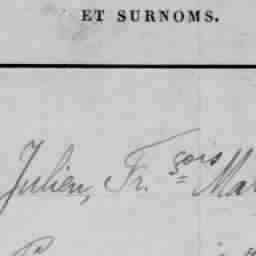 ET SURNOMS.
Julien, Fr.çois Mar